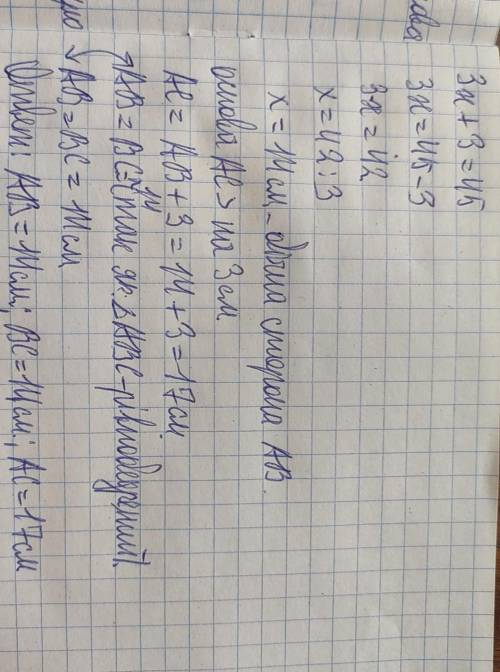 3x + 3 = 45
3x = 45 - 3
3x = 42
x = 42 : 3
x = 14 см - бічна сторона AB.
основа AC > на 3 см
AC = AB + 3 = 14 + 3 = 17 см
AB = BC = 14 (так як △ABC - рівнобедрений).
AB = BC = 14 см
Ответ: AB = 14 см; BC = 14 см; AC = 17 см